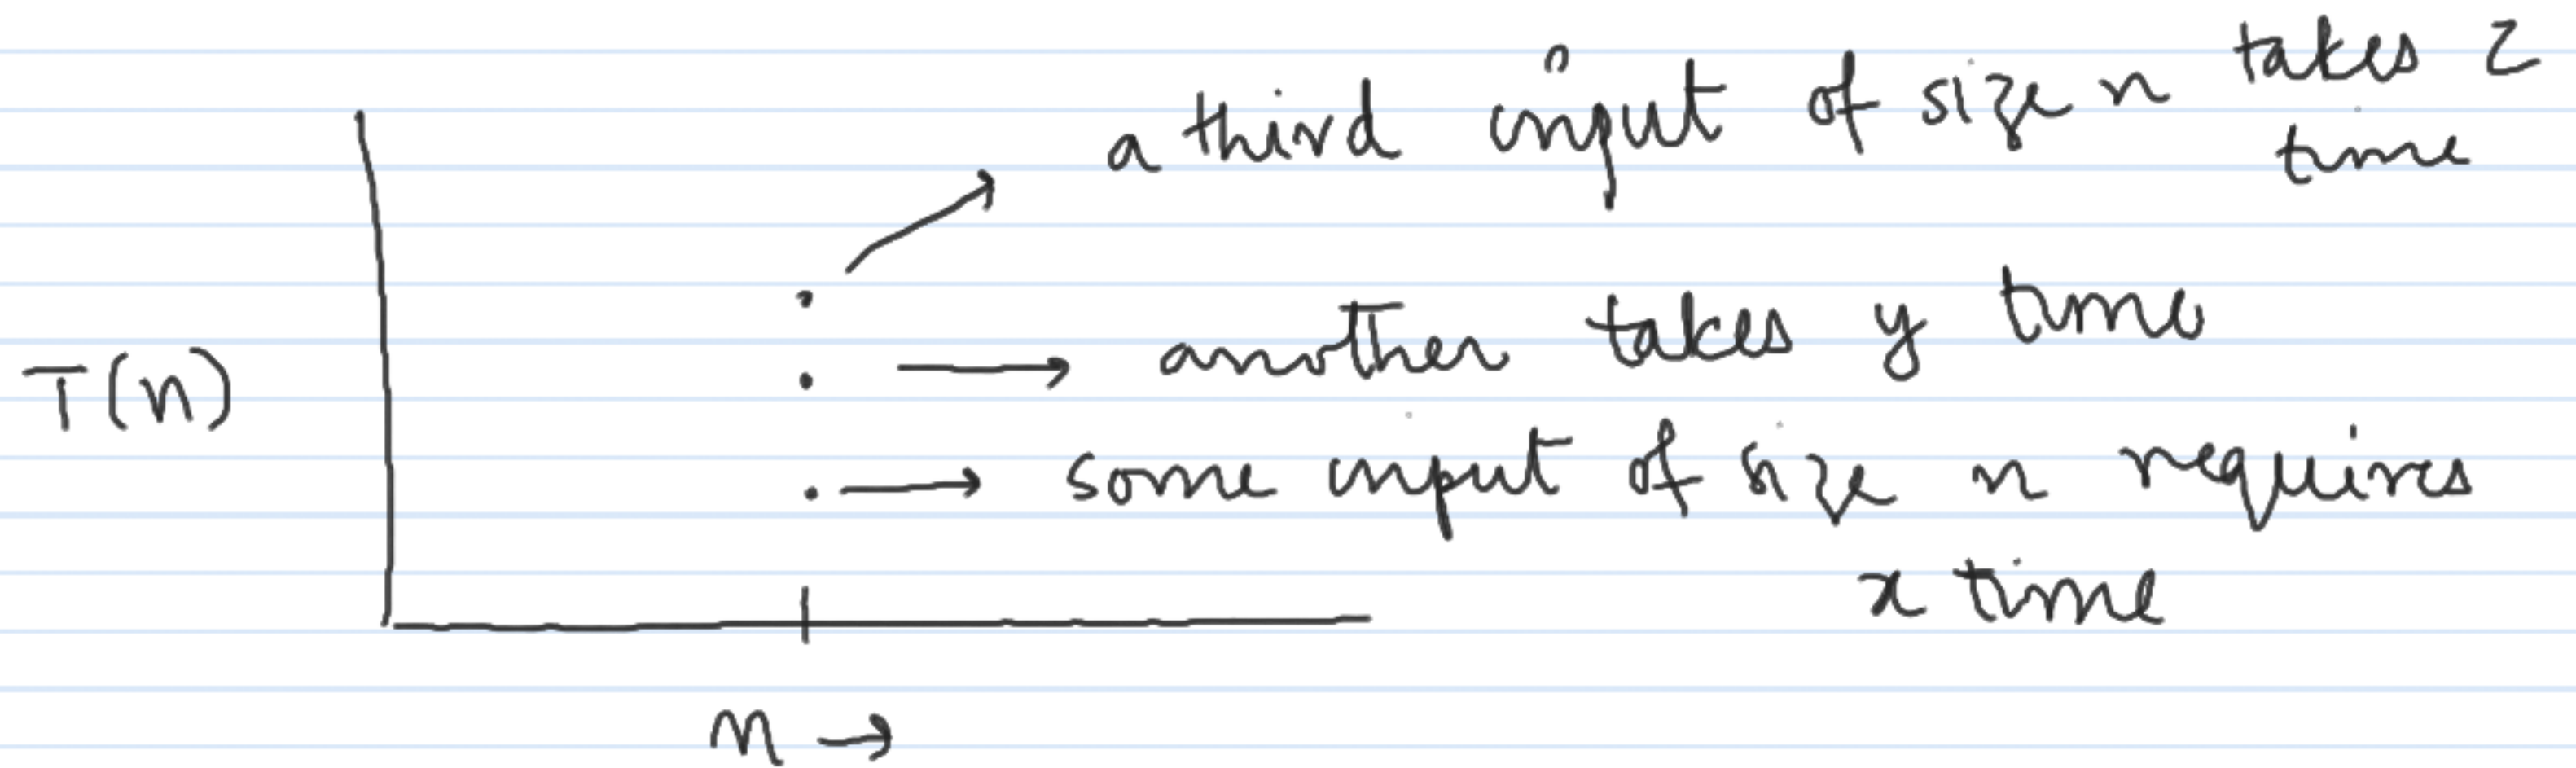 a third input of size n takes z
time
another takes y time
T(n)
some input of size n requires
x time
n →